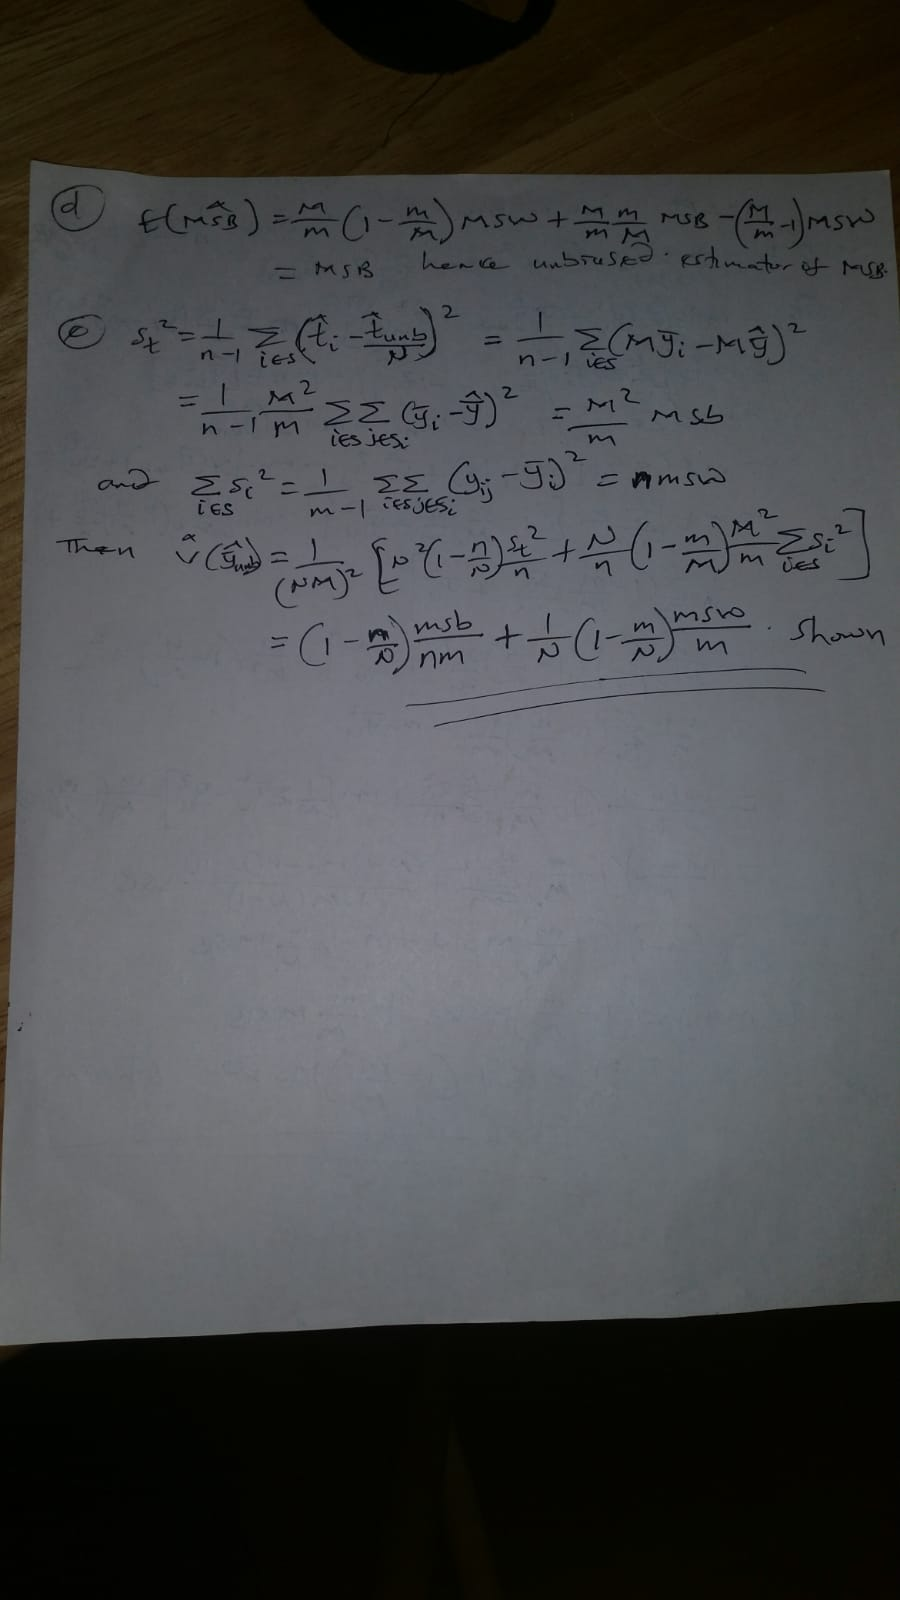 (d) E(MŜB) = M/m (1 - m/M) MSW + M/m m/M MSB - (M/m - 1) MSW
= MSB hence unbiased estimator of MSB.
(e) s_t² = 1/(n-1) Σ_{i∈S} (t̂_i - t̂_unb/N)² = 1/(n-1) Σ_{i∈S} (Mȳ_i - Mŷ̄)²
= 1/(n-1) M²/m Σ_{i∈S} Σ_{j∈S_i} (ȳ_i - ŷ̄)² = M²/m msb
and Σ_{i∈S} s_i² = 1/(m-1) Σ_{i∈S} Σ_{j∈S_i} (y_ij - ȳ_i)² = n msw
Then V̂(ŷ̄_unb) = 1/(NM)² [N²(1 - n/N) s_t²/n + N/n (1 - m/M) M²/m Σ_{i∈S} s_i²]
= (1 - n/N) msb/nm + 1/N (1 - m/N) msw/m . shown